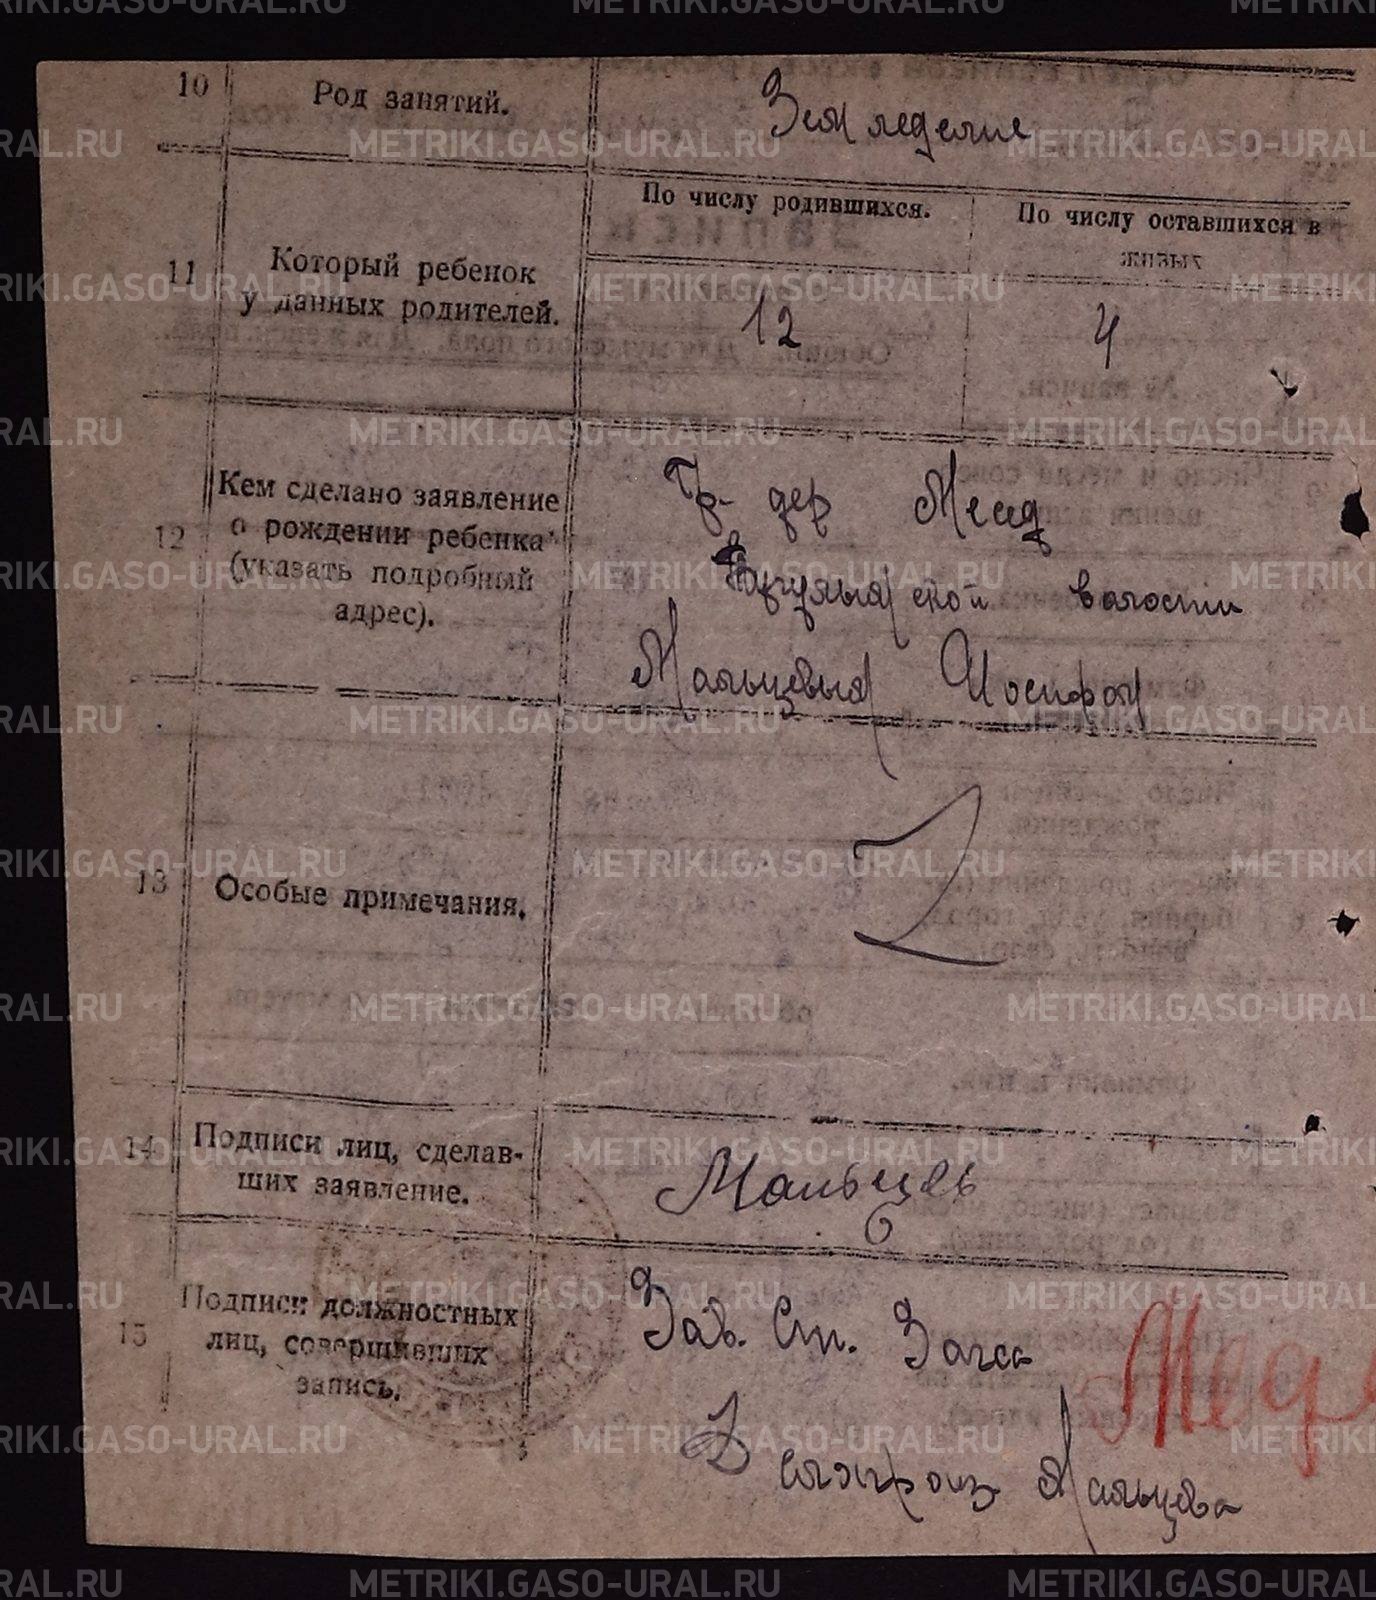 10 Род занятий. Земледелие
По числу родившихся. По числу оставшихся в живых
11 Который ребенок
у данных родителей. 12 4
12 Кем сделано заявление
о рождении ребенка
(указать подробный
адрес).
Гр- дер
волости
Мальцевым Иосифом
13 Особые примечания.
14 Подписи лиц, сделав-
ших заявление.
Мальцев
15 Подписи должностных
лиц, совершивших
запись.
Зав. Ст. Загса
Мальцева
METRIKI.GASO-URAL.RU